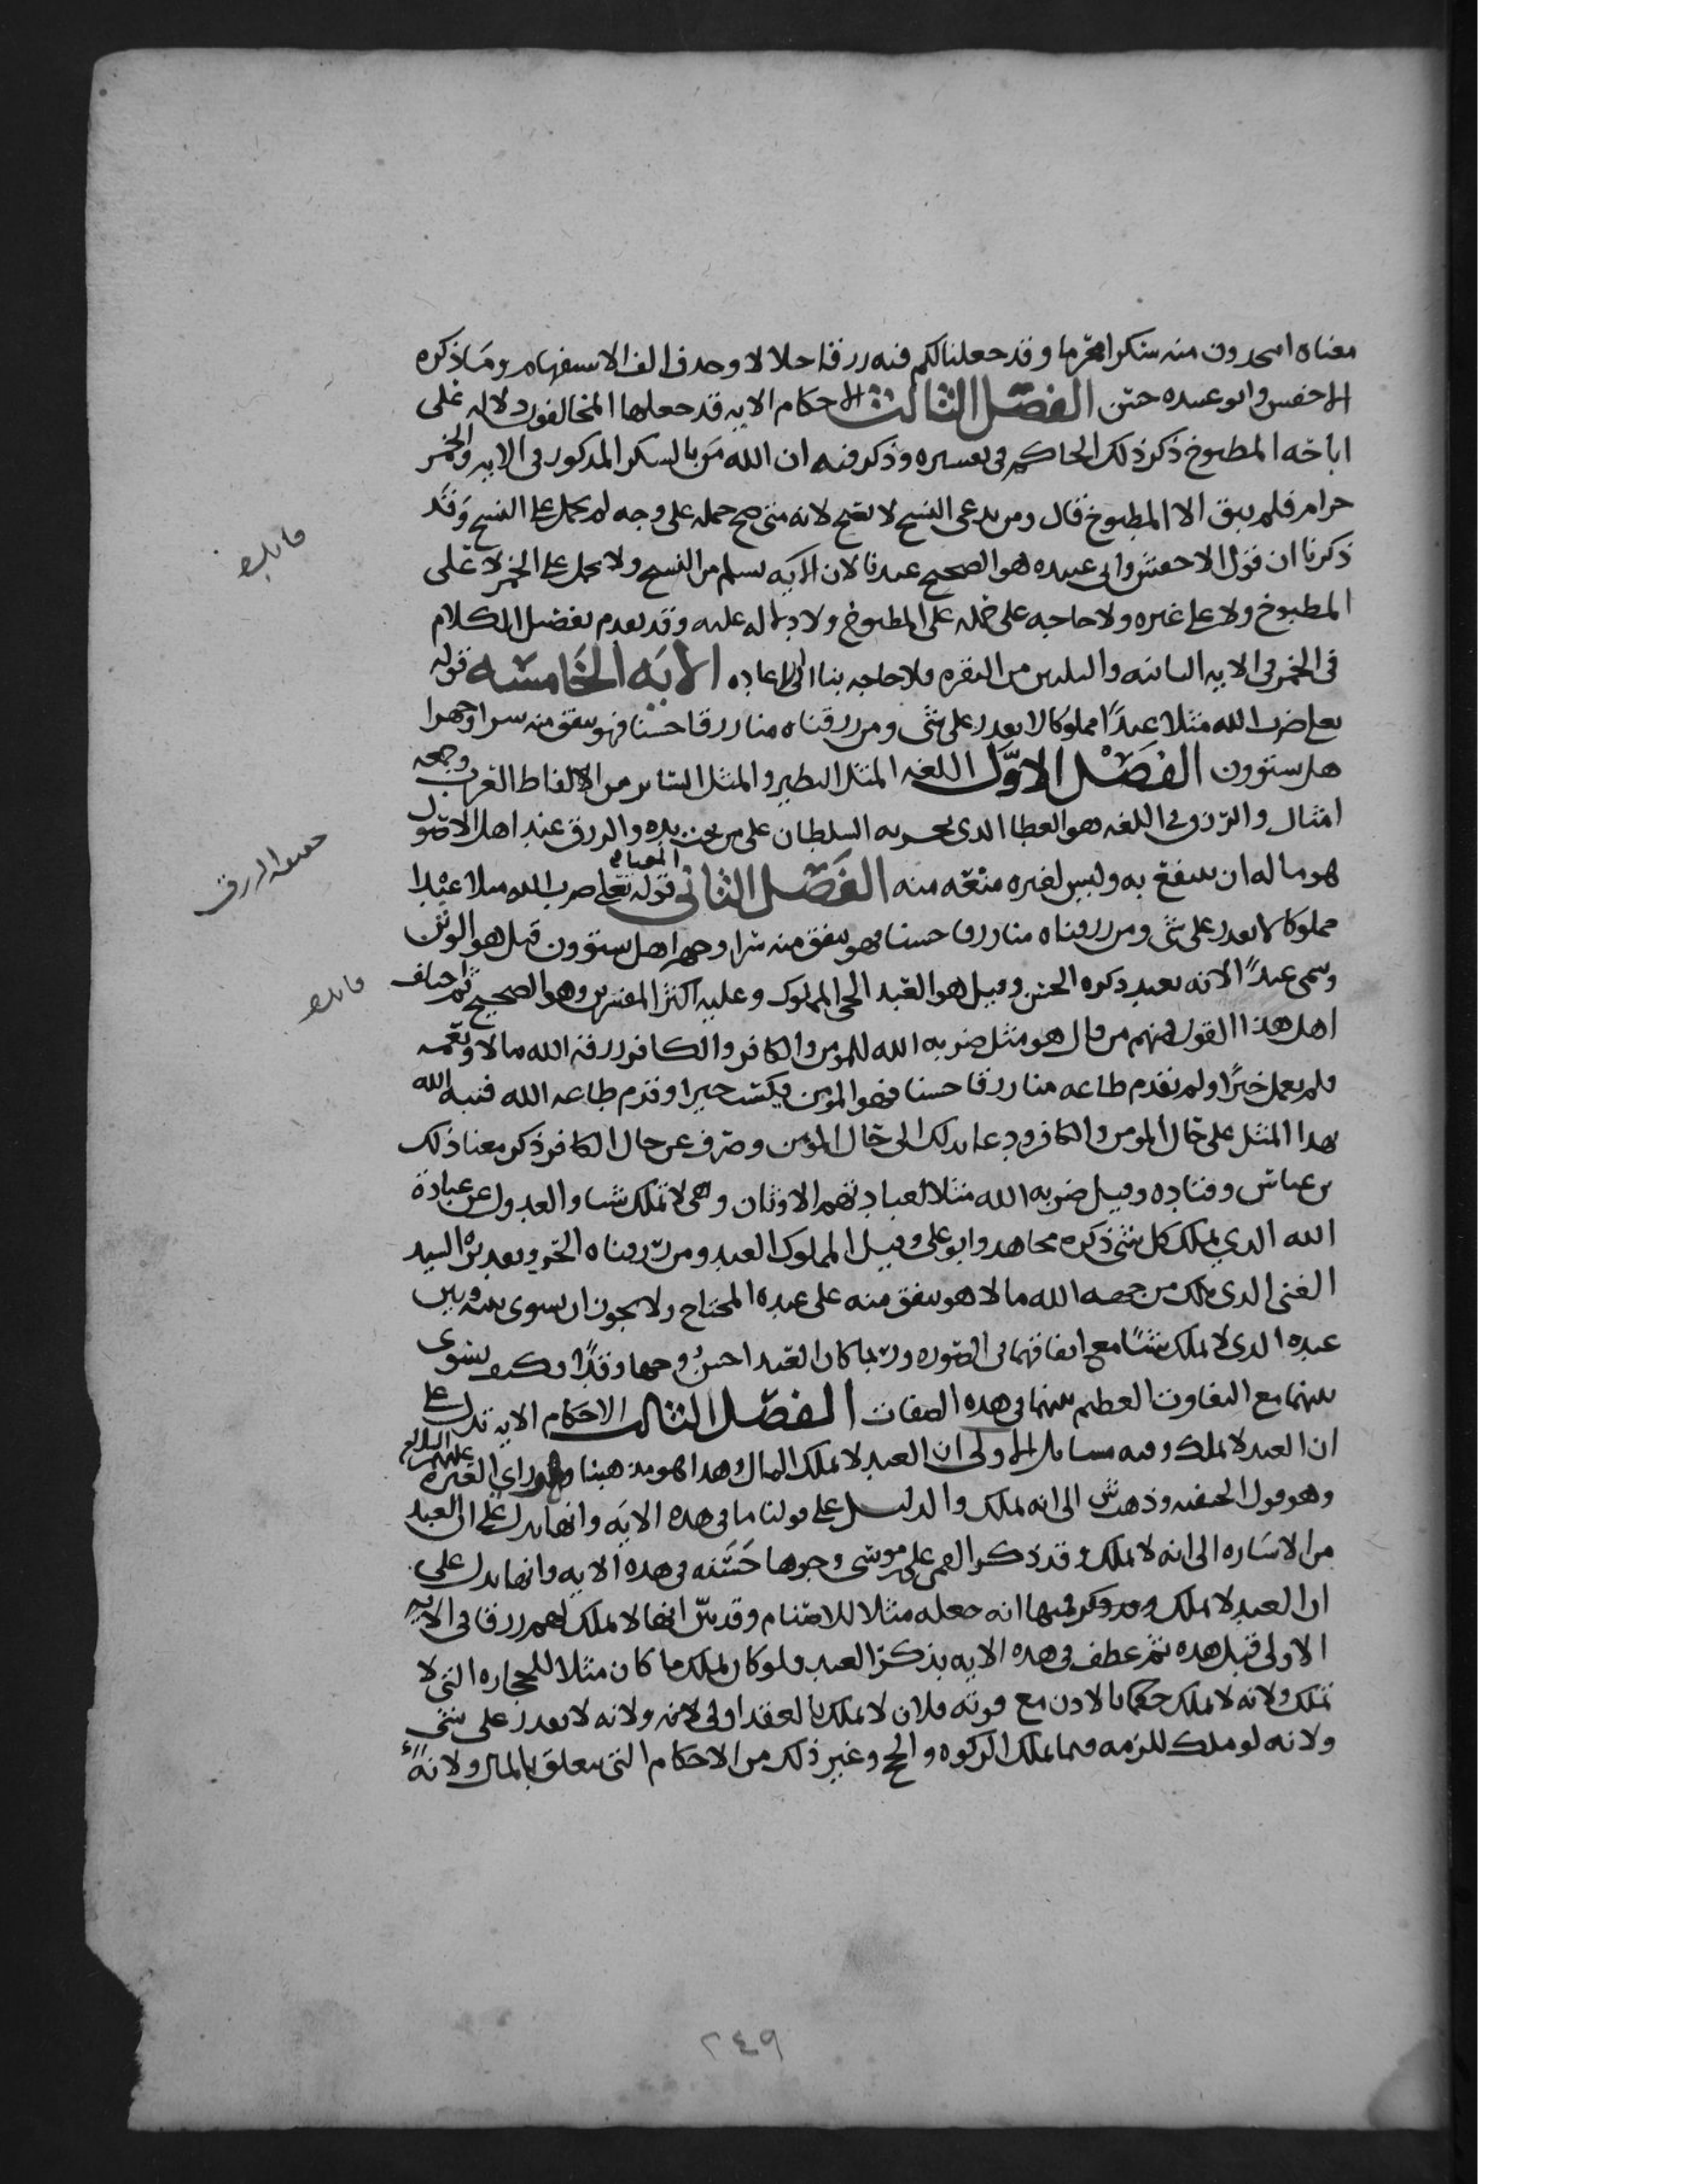 معناه اتتخذون منه سكرا محرما وقد جعلنا لكم فيه رزقا حلالا وحذف الف الاستفهام وما ذكره
الاخفش وابو عبيده حسن الفصل الثالث الاحكام الايه قد جعلها المخالفون دلاله على
اباحه المطبوخ ذكر ذلك الحاكم في تفسيره وذكر فيه ان الله من بالسكر المذكور في الايه والخمر
حرام فلم يبق الا المطبوخ قال ومن يدعي النسخ لا يصح لانه متى صح حمله على وجه لم يحمل على النسخ وقد
ذكرنا ان قول الاخفش وابي عبيده هو الصحيح عندنا لان الايه تسلم من النسخ ولا تحمل على الخمر لا على
المطبوخ ولا على غيره ولا حاجه على حمله على المطبوخ ولا دلاله عليه وقد تقدم تفصيل الكلام
في الخمر في الايه الثانيه والثلاثين من البقره فلا حاجه بنا الى الاعاده الايه الخامسه قوله
تعلى ضرب الله مثلا عبدا مملوكا لا يقدر على شي ومن رزقناه منا رزقا حسنا فهو ينفق منه سرا وجهرا
هل يستوون الفصل الاول اللغه المثل النظير والمثل الساير من الالفاظ العرب وجمعه
امثال والرزق في اللغه هو العطا الذي يجريه السلطان على من تحت يده والرزق عند اهل الاصول
هو ما له ان ينتفع به وليس لغيره منعه منه الفصل الثاني المعنى قوله تعلى ضرب الله مثلا عبدا
مملوكا لا يقدر على شي ومن رزقناه منا رزقا حسنا فهو ينفق منه سرا وجهرا هل يستوون قيل هو الوثن
وسمى عبدا لانه يعبد ذكره الحسن وقيل هو العبد الحي المملوك وعليه اكثر المفسرين وهو الصحيح ثم اختلف
اهل هذا القول فمنهم من قال هو مثل ضربه الله للمومن والكافر والكافر رزقه الله مالا ونعمه
فلم يعمل خيرا ولم يقدم طاعه منا رزقا حسنا فهو المومن يكتسب خيرا وقدم طاعه الله فنبه الله
بهذا المثل على حال المومن والكافر ودعا بذلك الى حال المومن وصرف عن حال الكافر ذكر معنا ذلك
بن عباس وقتاده وقيل ضربه الله مثلا لعبادتهم الاوثان وهي لا تملك شيا والعدول عن عبادة
الله الذي يملك كل شي ذكره مجاهد وابو على وقيل المملوك العبد ومن رزقناه الحر وتقديره السيد
الغني الذي يملك من جهه الله مالا هو ينفق منه على عبده المحتاج ولا يجوز ان يسوى بينه وبين
عبده الذي لا يملك شيئا مع اتفاقهما في الصوره وربما كان العبد احسن وجها وقدا وكيف يسوى
بينهما مع التفاوت العظيم بينهما في هذه الصفات الفصل الثالث الاحكام الايه تدل على
ان العبد لا يملك وفيه مسايل الاولى ان العبد لا يملك المال وهذا هو مذهبنا وهو راي العتره عليهم السلام
وهو قول الحنفيه وذهب ش الى انه يملك والدليل على قولنا ما في هذه الايه وانها تدل على ان العبد
من الاشاره الى انه لا يملك وقد ذكر القمي على موسى وجوها حسنه في هذه الايه وانها تدل على
ان العبد لا يملك وقد ذكر فيها انه جعله مثلا للاصنام وقد بين انها لا تملك لهم رزقا في الايه
الاولى قبل هذه ثم عطف في هذه الايه بذكر العبد ولو كان يملك ما كان مثلا للحجاره التي لا
تملك ولانه لا يملك حكما بالاذن مع قوته فلان لا يملك بالعقد اولى لانه ولانه لا يقدر على شي
ولانه لو ملك للزمه فيما يملك الزكوه والحج وغير ذلك من الاحكام التي تتعلق بالمال ولانه
فايده
حقيقه الرزق
فايده
٢٤٩